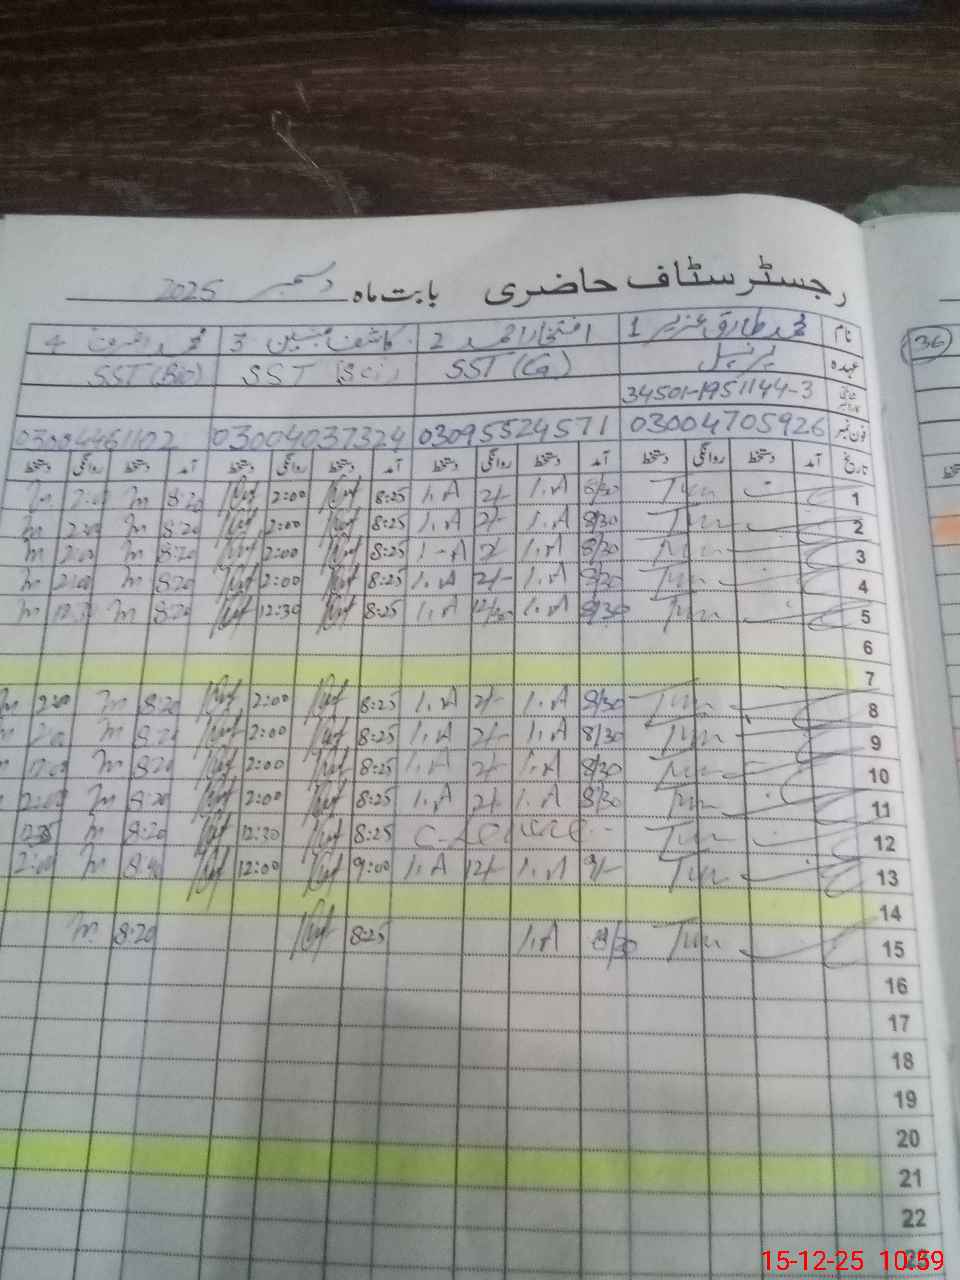 رجسٹر سٹاف حاضری بابت ماہ دسمبر 2025
نام محمد طارق عزیز 1 افتخار احمد 2 کاشف حسین 3 محمد اشرف 4
عہدہ پرنسپل SST (G) SST (Sci) SST (Bio)
34501-1951144-3
فون نمبر 03004705926 03095524571 03004037324 03004461102
تاریخ آمد دستخط روانگی دستخط آمد دستخط روانگی دستخط آمد دستخط روانگی دستخط آمد دستخط روانگی
1 8/30 1.A 2/- 1.A 8:25 2:00 8:20 m 2:00 m
2 8/30 1.A 2/- 1.A 8:25 2:00 8:20 m 2:00 m
3 8/30 1.A 2/- 1.A 8:25 2:00 8:20 m 2:00 m
4 8/30 1.A 2/- 1.A 8:25 2:00 8:20 m 2:00 m
5 8/30 1.A 12/30 1.A 8:25 12:30 8:20 m 12:30 m
6
7
8 8/30 1.A 2/- 1.A 8:25 2:00 8:20 m 2:00 m
9 8/30 1.A 2/- 1.A 8:25 2:00 8:20 m 2:00
10 8/30 1.A 2/- 1.A 8:25 2:00 8:20 m 2:00
11 8/30 1.A 2/- 1.A 8:25 2:00 8:20 m 2:00
12 C-Leave 8:25 12:30 8:20 m
13 9/- 1.A 12/- 1.A 9:00 12:00 m 2:00
14
15 8/30 1.A 8:25 8:20 m
16
17
18
19
20
21
22
23
36
15-12-25 10:59